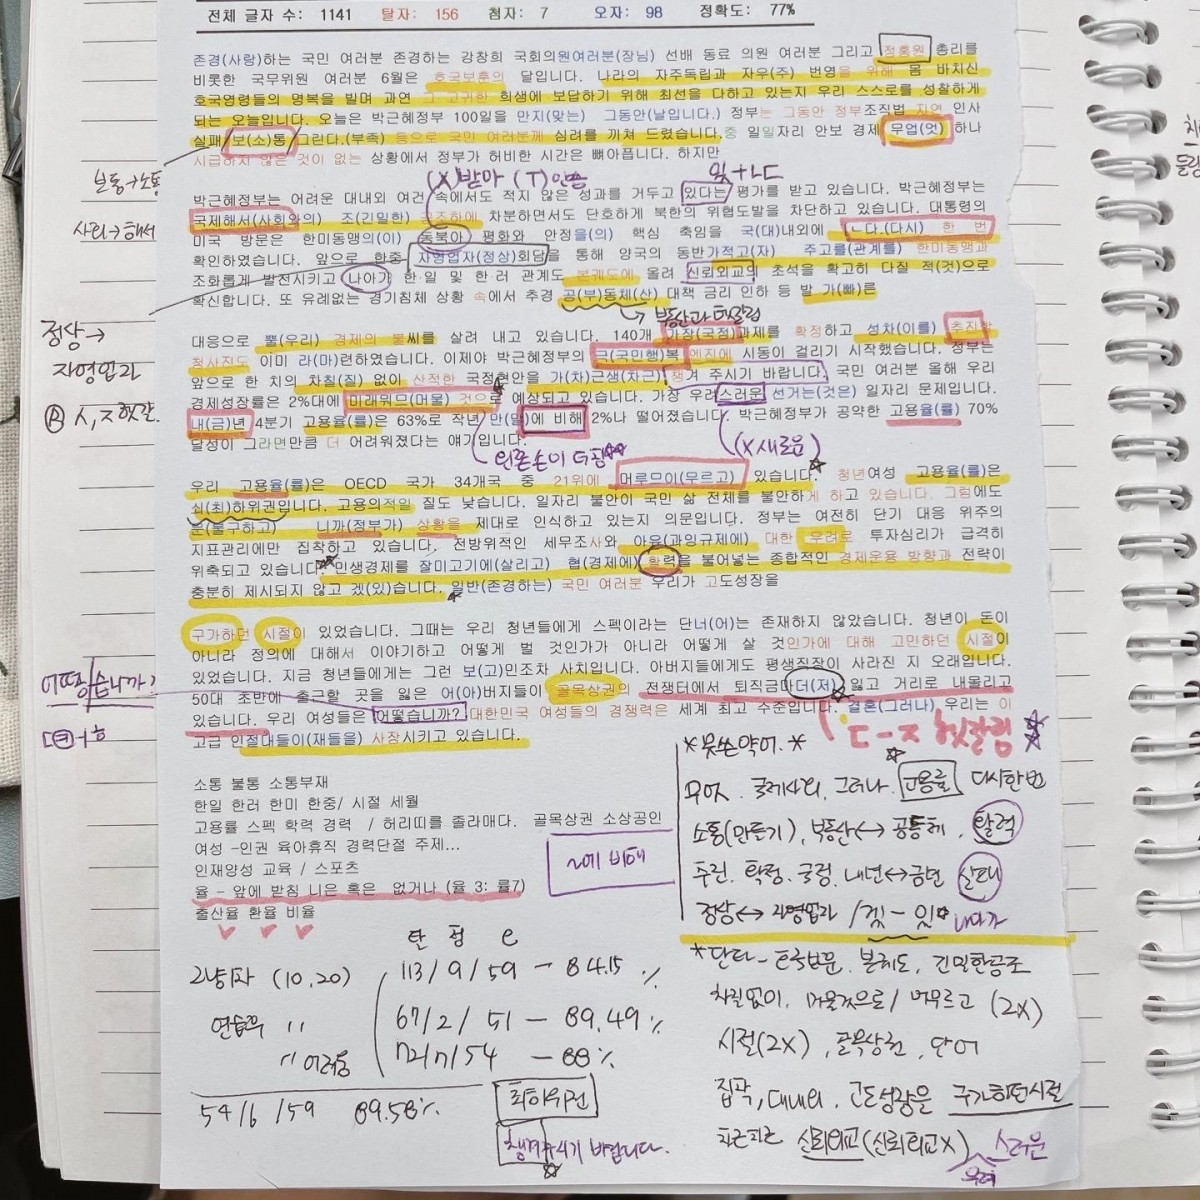 전체 글자 수: 1141 탈자: 156 첨자: 7 오자: 98 정확도: 77%
존경(사랑)하는 국민 여러분 존경하는 강창희 국회의원여러분(장님) 선배 동료 의원 여러분 그리고 정홍원 총리를
비롯한 국무위원 여러분 6월은 호국보훈의 달입니다. 나라의 자주독립과 자우(주) 번영을 위해 몸 바치신
호국영령들의 명복을 빌며 과연 그 고귀한 희생에 보답하기 위해 최선을 다하고 있는지 우리 스스로를 성찰하게
되는 오늘입니다. 오늘은 박근혜정부 100일을 만지(맞는) 그동안(날입니다.) 정부는 그동안 정부조직법 지연 인사
실패 보(소)통 그린다.(부족) 등으로 국민 여러분께 심려를 끼쳐 드렸습니다.중 일일자리 안보 경제 무업(엇) 하나
시급하지 않은 것이 없는 상황에서 정부가 허비한 시간은 뼈아픕니다. 하지만
보통→소통
사회→해서
(X)받아 (T)안씀
있+LC
박근혜정부는 어려운 대내외 여건 속에서도 적지 않은 성과를 거두고 있다는 평가를 받고 있습니다. 박근혜정부는
국제해서(사회와의) 조(긴밀한) 공조하에 차분하면서도 단호하게 북한의 위협도발을 차단하고 있습니다. 대통령의
미국 방문은 한미동맹의(이) 동북아 평화와 안정을(의) 핵심 축임을 국(대)내외에 ㄴ다.(다시) 한 번
확인하였습니다. 앞으로 한중 자영업자(정상)회담을 통해 양국의 동반가적고(자) 주고를(관계를) 한미동맹과
조화롭게 발전시키고 나아가 한 일 및 한 러 관계도 본궤도에 올려 신뢰외교의 초석을 확고히 다질 적(것)으로
확신합니다. 또 유례없는 경기침체 상황 속에서 추경 공(부)동체(산) 대책 금리 인하 등 발 가(빠)른
부동산과 헷갈림
정상→
자영업과
ㅅ,ㅈ 헷갈.
대응으로 뿔(우리) 경제의 불씨를 살려 내고 있습니다. 140개 가장(국정)과제를 확정하고 성차(이를) 추진할
청사진도 이미 라(마)련하였습니다. 이제야 박근혜정부의 극(국민행)복 엔진에 시동이 걸리기 시작했습니다. 정부는
앞으로 한 치의 차칠(질) 없이 산적한 국정현안을 가(차)근생(차근) 챙겨 주시기 바랍니다. 국민 여러분 올해 우리
경제성장률은 2%대에 미래워므(머물) 것으로 예상되고 있습니다. 가장 우려스러운 선거는(것은) 일자리 문제입니다.
내(금)년 4분기 고용율(률)은 63%로 작년 만(말)에 비해 2%나 떨어졌습니다. 박근혜정부가 공약한 고용율(률) 70%
달성이 그라면만큼 더 어려워졌다는 얘기입니다.
왼쪽손이 더핌
(X새로운)
우리 고용율(률)은 OECD 국가 34개국 중 21위에 머루므이(무르고) 있습니다. 청년여성 고용율(률)은
쇠(최)하위권입니다. 고용의적일 질도 낮습니다. 일자리 불안이 국민 삶 전체를 불안하게 하고 있습니다. 그럼에도
분(불구하고) 니까(정부가) 상황을 제대로 인식하고 있는지 의문입니다. 정부는 여전히 단기 대응 위주의
지표관리에만 집착하고 있습니다. 전방위적인 세무조사와 아윰(과잉규제에) 대한 우려로 투자심리가 급격히
위축되고 있습니다. 민생경제를 잘미고기에(살리고) 협(경제에) 활력을 불어넣는 종합적인 경제운용 방향과 전략이
충분히 제시되지 않고 겠(있)습니다. 일반(존경하는) 국민 여러분 우리가 고도성장을
구가하던 시절이 있었습니다. 그때는 우리 청년들에게 스펙이라는 단너(어)는 존재하지 않았습니다. 청년이 돈이
아니라 정의에 대해서 이야기하고 어떻게 벌 것인가가 아니라 어떻게 살 것인가에 대해 고민하던 시절이
있었습니다. 지금 청년들에게는 그런 보(고)민조차 사치입니다. 아버지들에게도 평생직장이 사라진 지 오래입니다.
50대 초반에 출근할 곳을 잃은 어(아)버지들이 골목상권의 전쟁터에서 퇴직금마더(저) 잃고 거리로 내몰리고
있습니다. 우리 여성들은 어떻습니까? 대한민국 여성들의 경쟁력은 세계 최고 수준입니다. 결혼(그러나) 우리는 이
고급 인절대들이(재들을) 사장시키고 있습니다.
어떻습니까?
ㄷ-ㅈ 헷갈림
소통 불통 소통부재
한일 한러 한미 한중/ 시절 세월
고용률 스펙 학력 경력 / 허리띠를 졸라매다. 골목상권 소상공인
여성 -인권 육아휴직 경력단절 주제...
인재양성 교육 / 스포츠
율 - 앞에 받침 니은 혹은 없거나 (율 3: 률7)
출산율 환율 비율
~에 비해
*못쓴약어.*
무엇. 국제사회, 그러나. 고용률 다시한번
소통(만들기), 부동산↔공동체, 활력
추진. 확정. 국정. 내년↔금년 실패
정상↔자영업자 /겠-있 나아가
*단타- 호국보훈. 본궤도, 긴밀한공조
차질없이. 머물것으로/ 머무르고 (2X)
시절(2X), 골목상권, 단어
집착, 대내외, 고도성장을 구가하던시절
차근차근 신뢰외교(신뢰회교X) 스러운
우려
탄 정 e
2낭독자 (10.20) 113/9/59 - 84.15 %
연습후 〃 67/2/51 - 89.49%
〃 72/7/54 - 88%
54/6/59 89.58%
최하위권
챙겨주시기 바랍니다.